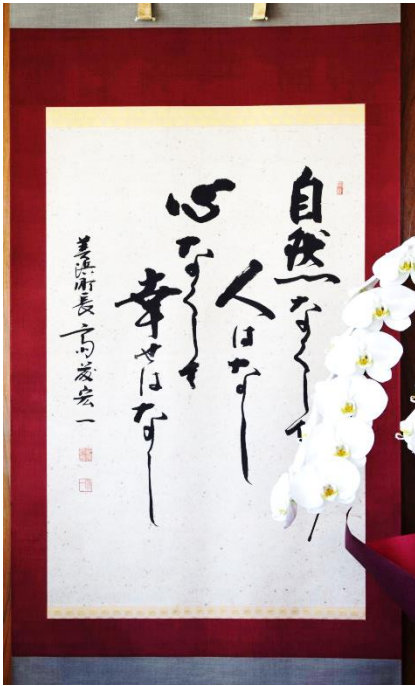 自然なくして
人はなし
心なくして
幸せはなし
美浜町長 斎藤宏一